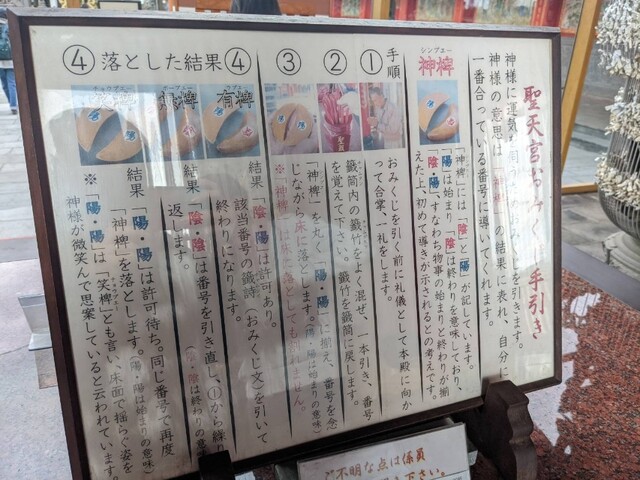 聖天宮おみくじ手引き
神様に運気を
を引きます。
神様の意思は
の結果に表れ、自分に
一番合っている番号に導いてくれます。
シンプエー
神椑
「神椑」には「陰」と「陽」が記しています。
「陽」は始まり「陰」は終わりを意味しており、
「陰・陽」、すなわち物事の始まりと終わりが揃
えた上、初めて導きが示されるとの考えです。
手順
①
おみくじを引く前に礼儀として本殿に向か
って合掌、一礼をします。
②
籤筒内の籤竹をよく混ぜ、一本引き、番号
を覚えて下さい。籤竹を籤筒に戻します。
③
「神椑」を丸く「陽・陽」に揃え、番号を念
じながら床に落とします。(陽・陽は始まりの意味)
※「神椑」は床に落としても割れません。
④落とした結果④
有椑
結果「陰・陽」は許可あり。
該当番号の籤詩(おみくじ文)を引いて
終わりになります。
結果「陰・陰」は番号を引き直し、①から繰り
返します。
陰は終わりの意
結果「陽・陽」は許可待ち。同じ番号で再度
「神椑」を落とします。(陽・陽は始まりの意味)
※「陽・陽」は「笑椑」とも言い、床面で揺らぐ姿を
神様が微笑んで思案していると云われています。
ご不明な点は係員
下さい。